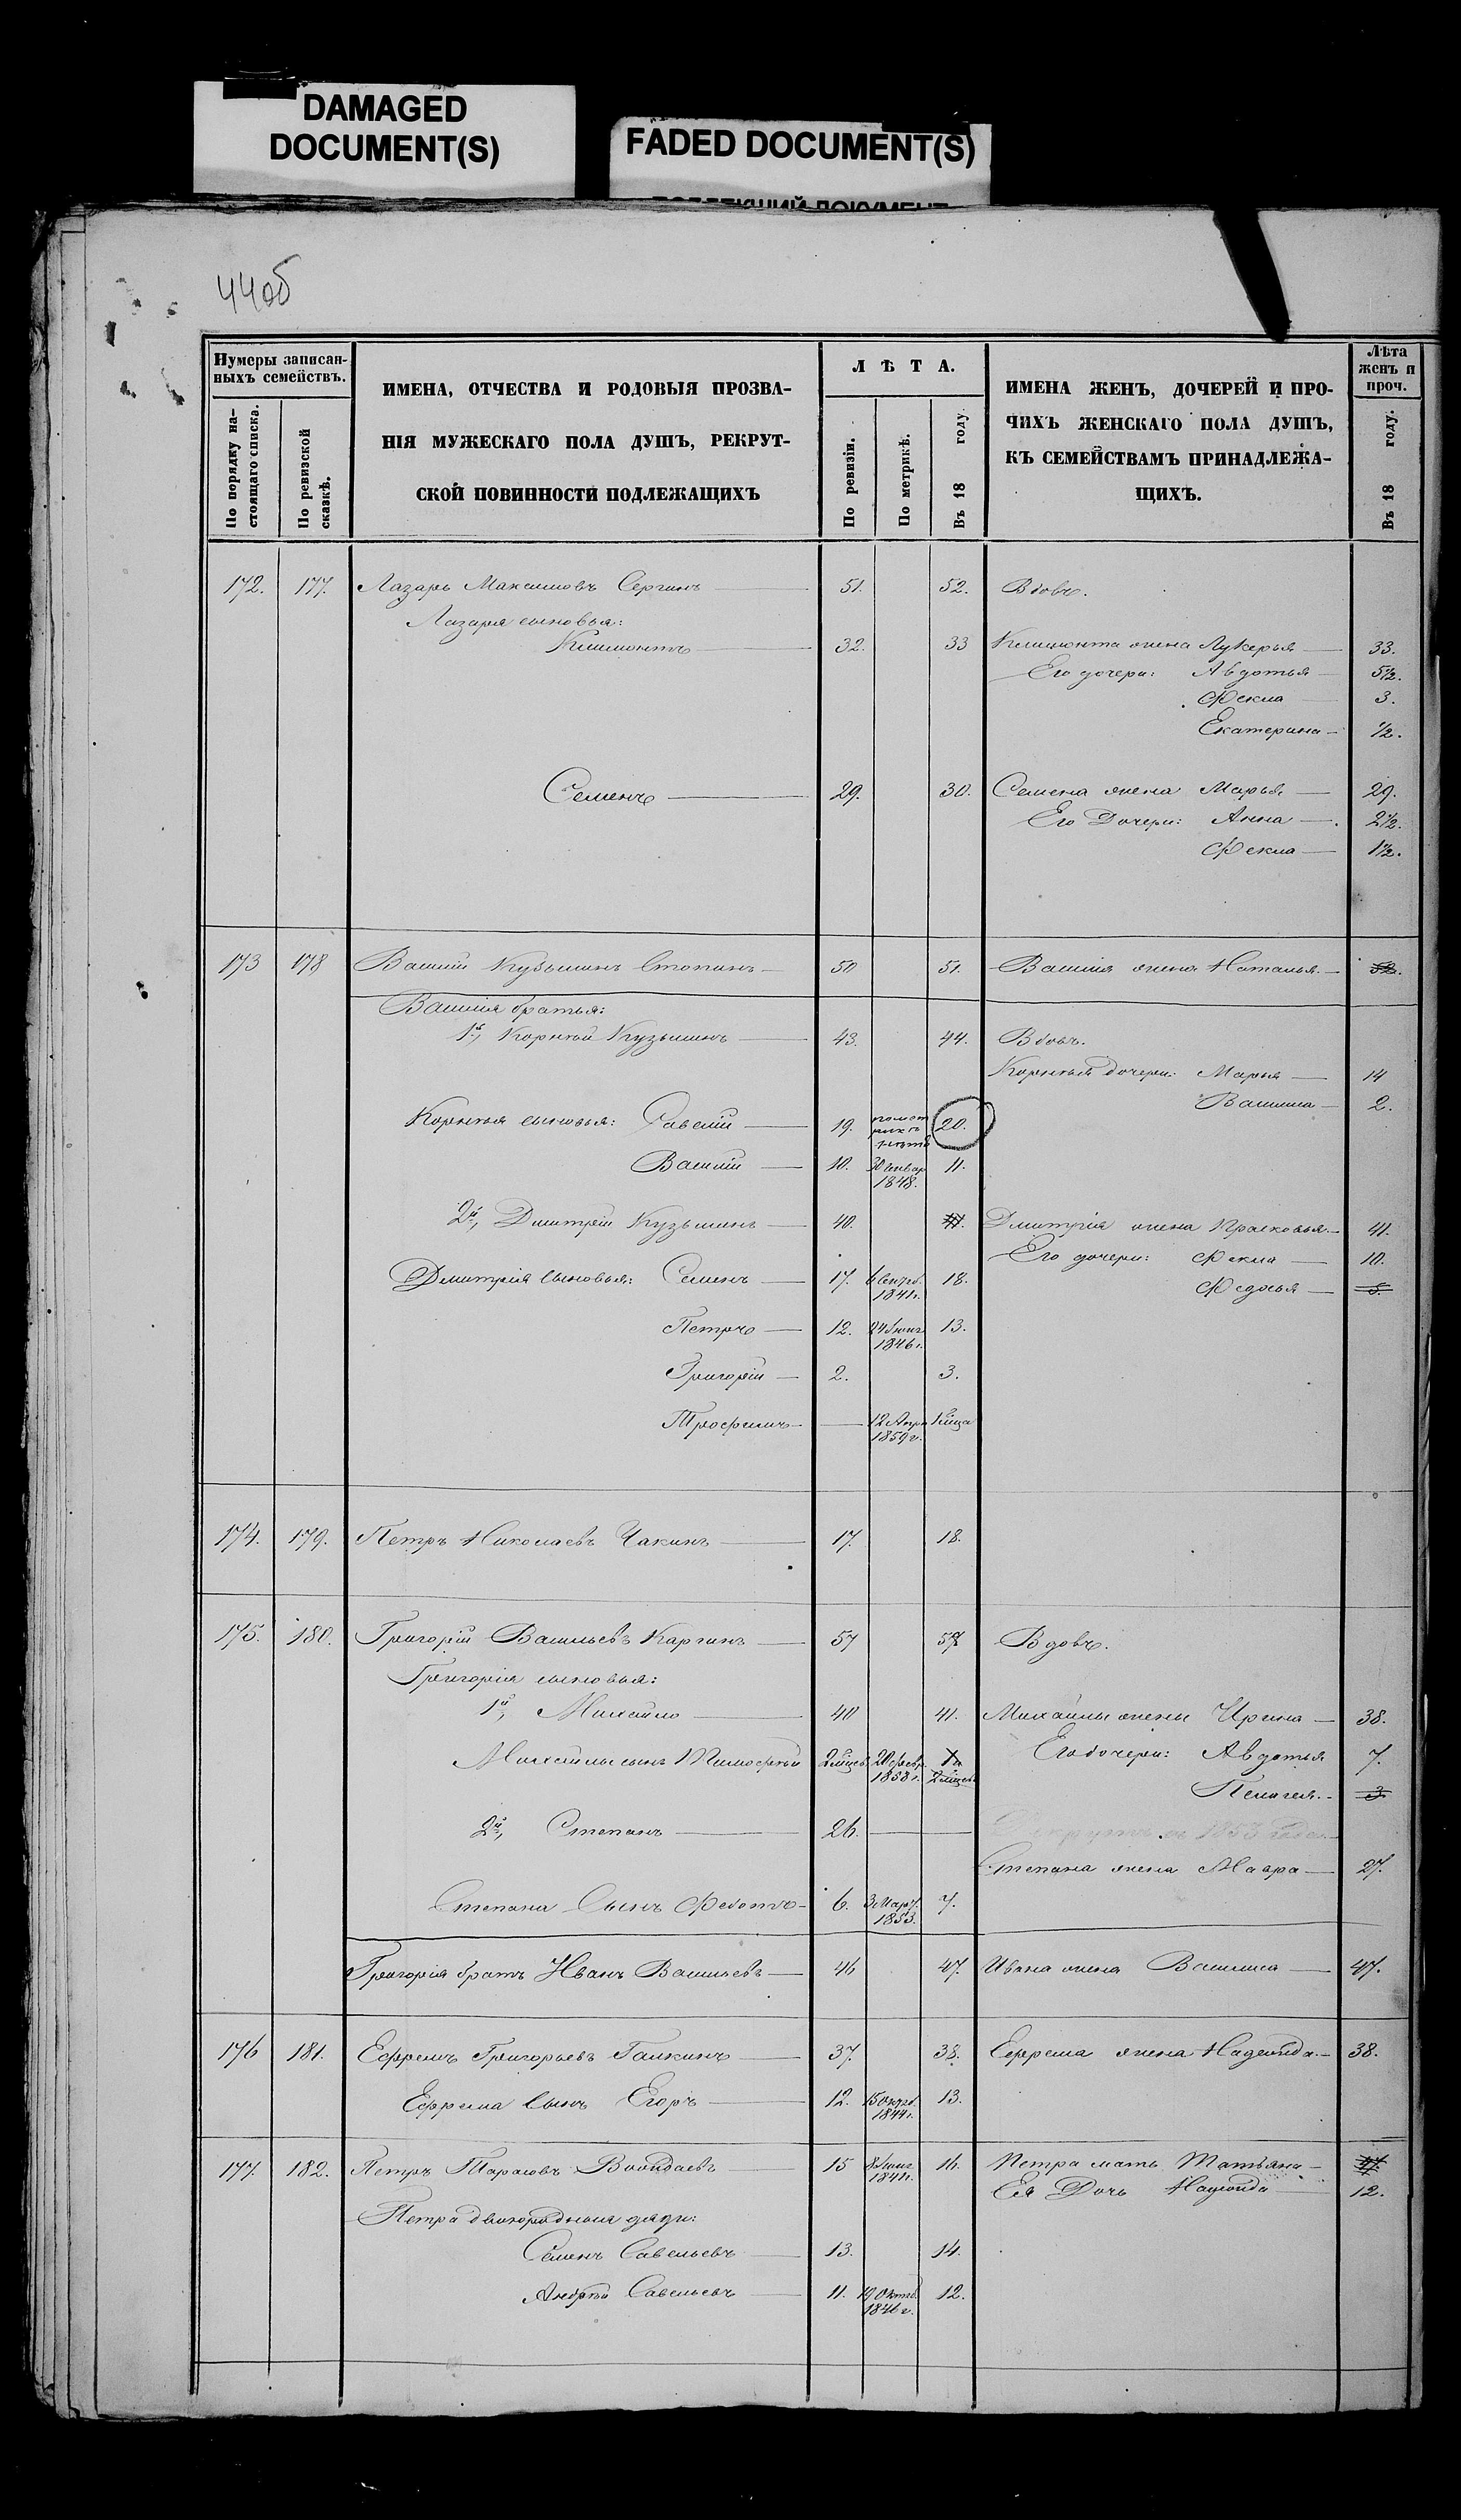 DAMAGED
DOCUMENT(S)
FADED DOCUMENT(S)
44об
Нумеры записан-
ныхъ семействъ.
По порядку на-
стоящаго списка.
По ревизской
сказкѣ.
ИМЕНА, ОТЧЕСТВА И РОДОВЫЯ ПРОЗВА-
НІЯ МУЖЕСКАГО ПОЛА ДУШЪ, РЕКРУТ-
СКОЙ ПОВИННОСТИ ПОДЛЕЖАЩИХЪ
ЛѢТА.
По ревизіи.
По метрикѣ.
Въ 18 году.
ИМЕНА ЖЕНЪ, ДОЧЕРЕЙ И ПРО-
ЧИХЪ ЖЕНСКАГО ПОЛА ДУШЪ,
КЪ СЕМЕЙСТВАМЪ ПРИНАДЛЕЖА-
ЩИХЪ.
Лѣта
женъ и
проч.
Въ 18 году.
172. 177. Лазарь Максимовъ Сергинъ 51. 52. Вдовъ.
Лазаря сыновья:
Климонтъ 32. 33 Климонта жена Лукерья 33.
Его дочери: Авдотья 5½.
Фекла 3.
Екатерина 1/2.
Семенъ 29. 30. Семена жена Марья 29.
Его Дочери: Анна 2½.
Фекла 1½.
173 178 Василій Кузьминъ 50 51. Василія жена Наталья
Василія братья:
1й, Корнѣй Кузьминъ 43. 44. Вдовъ.
Корнѣя дочери: Марья 14
Василиса 2.
Корнѣя сыновья: Савелій 19. 20.
Василій 10. 30 Январ 11.
1848.
2й, Дмитрій Кузьминъ 40. Дмитрія жена Прасковья 41.
Его дочери: Фекла 10.
Дмитрія Сыновья: Семенъ 17. 6 Сентяб. 18. Федосья
1841г.
Петръ 12. 24 Іюня 13.
1846г.
Григорій 2. 3.
Трофимъ 12 Апр
1859г.
174. 179. Петръ Николаевъ Чакинъ 17. 18.
175. 180. Григорій Васильевъ Каргинъ 57 Вдовъ.
Григорія сыновья:
1й, Михайло 40 41. Михайлы жены Ирина 38.
Михайлы сынъ Тимофѣй 20 февр. Его дочери: Авдотья 7.
1858г. Пелагея.
2й, Степанъ 26.
Степана жена Мавра 27.
Степана Сынъ Федотъ 6. 3 Март. 7.
1853.
Григорія братъ Иванъ Васильевъ 46 47. Ивана жена Василиса 47.
176 181. Ефремъ Григорьевъ Галкинъ 37. 38. Ефрема жена Надежда 38.
Ефрема Сынъ Егоръ 12. 13.
1844г.
177. 182. Петръ Тарасовъ 15 16. Петра мать Татьяна
1841г. Ея Дочь Надежда 12.
Петра двоюродные дяди:
Семенъ Савельевъ 13. 14.
Андрѣй Савельевъ 11. 19 Октяб. 12.
1846г.